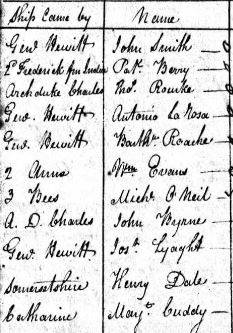 Ship Came by Name
Genl. Hewitt John Smith
Ps. Frederick Amsterdam Patk. Berry
Archduke Charles Thos. Rourke
Genl. Hewitt Antonio La Rosa
Genl. Hewitt Barthw. Roache
2 Anns Wm Evans
3 Bees Michl. O'Neil
A. D. Charles John Byrne
Genl. Hewitt Josh. Lyaght
Somersetshire Henry Dale
Catharine Margt. Cuddy